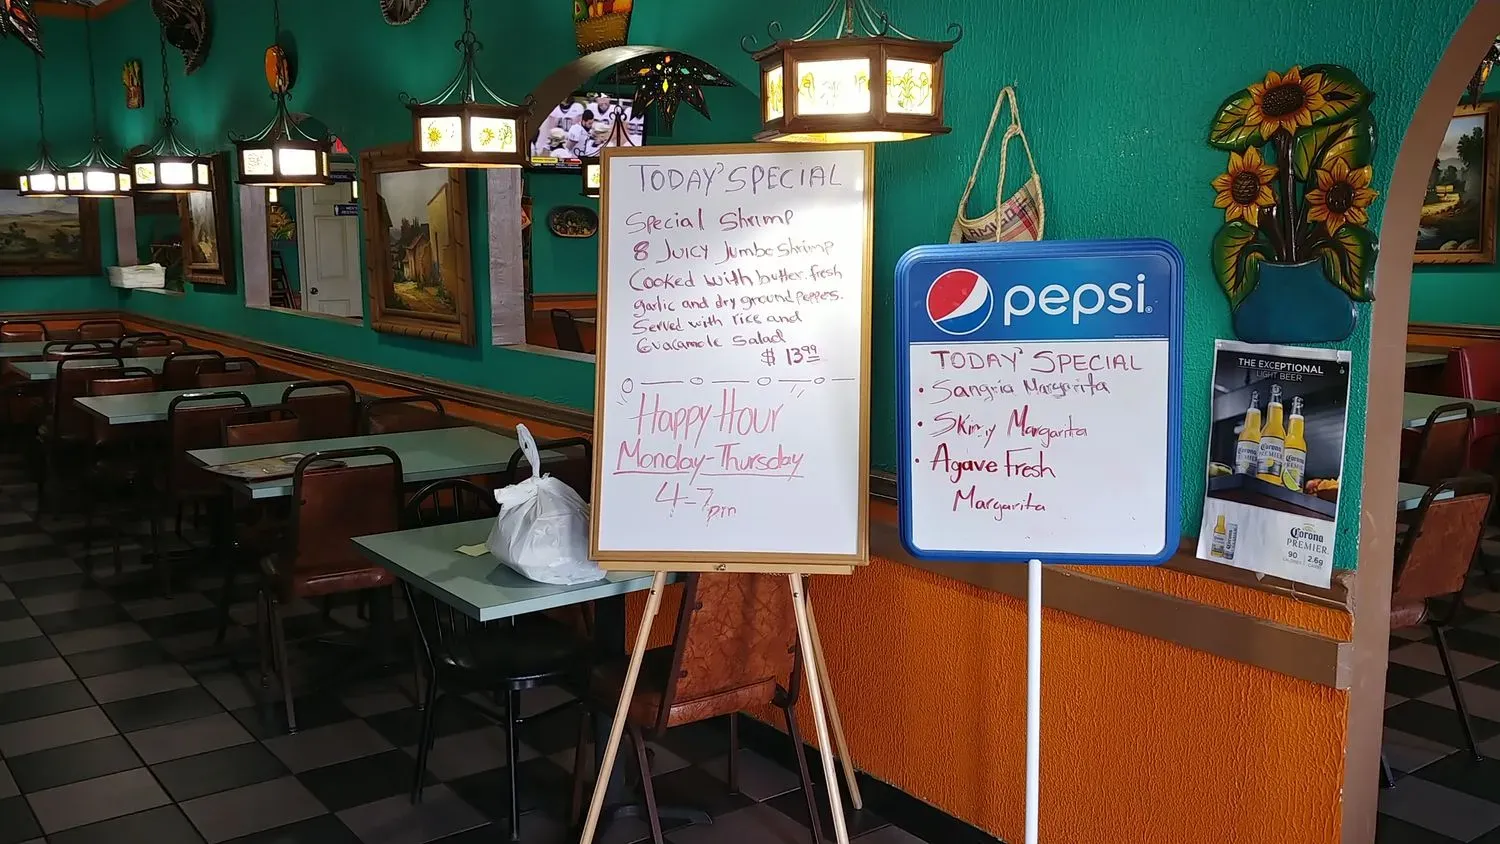 TODAY'SPECIAL
Special Shrimp
8 Juicy Jumbo Shrimp
Cooked with butter, fresh
garlic and dry ground peppers.
Served with rice and
Guacamole Salad
$ 13.99
Happy Hour
Monday-Thursday
4-7
pm
pepsi
TODAY' SPECIAL
• Sangria Margarita
• Skinny Margarita
• Agave Fresh
Margarita
THE EXCEPTIONAL
LIGHT BEER
Corona
PREMIER.
90
2.6g